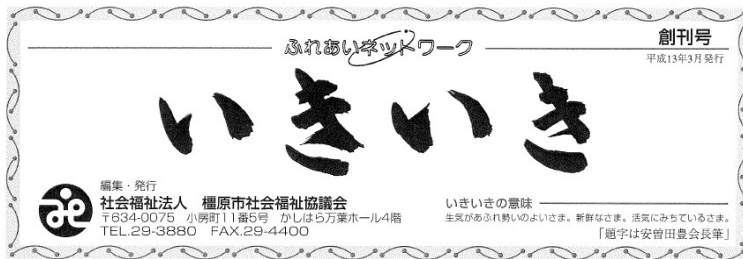 ふれあいネットワーク
創刊号
平成13年3月発行
いきいき
編集・発行
社会福祉法人 橿原市社会福祉協議会
〒634-0075 小房町11番5号 かしはら万葉ホール4階
TEL.29-3880 FAX.29-4400
いきいきの意味
生気があふれ勢いのよいさま。新鮮なさま。活気にみちているさま。
「題字は安曽田豊会長筆」